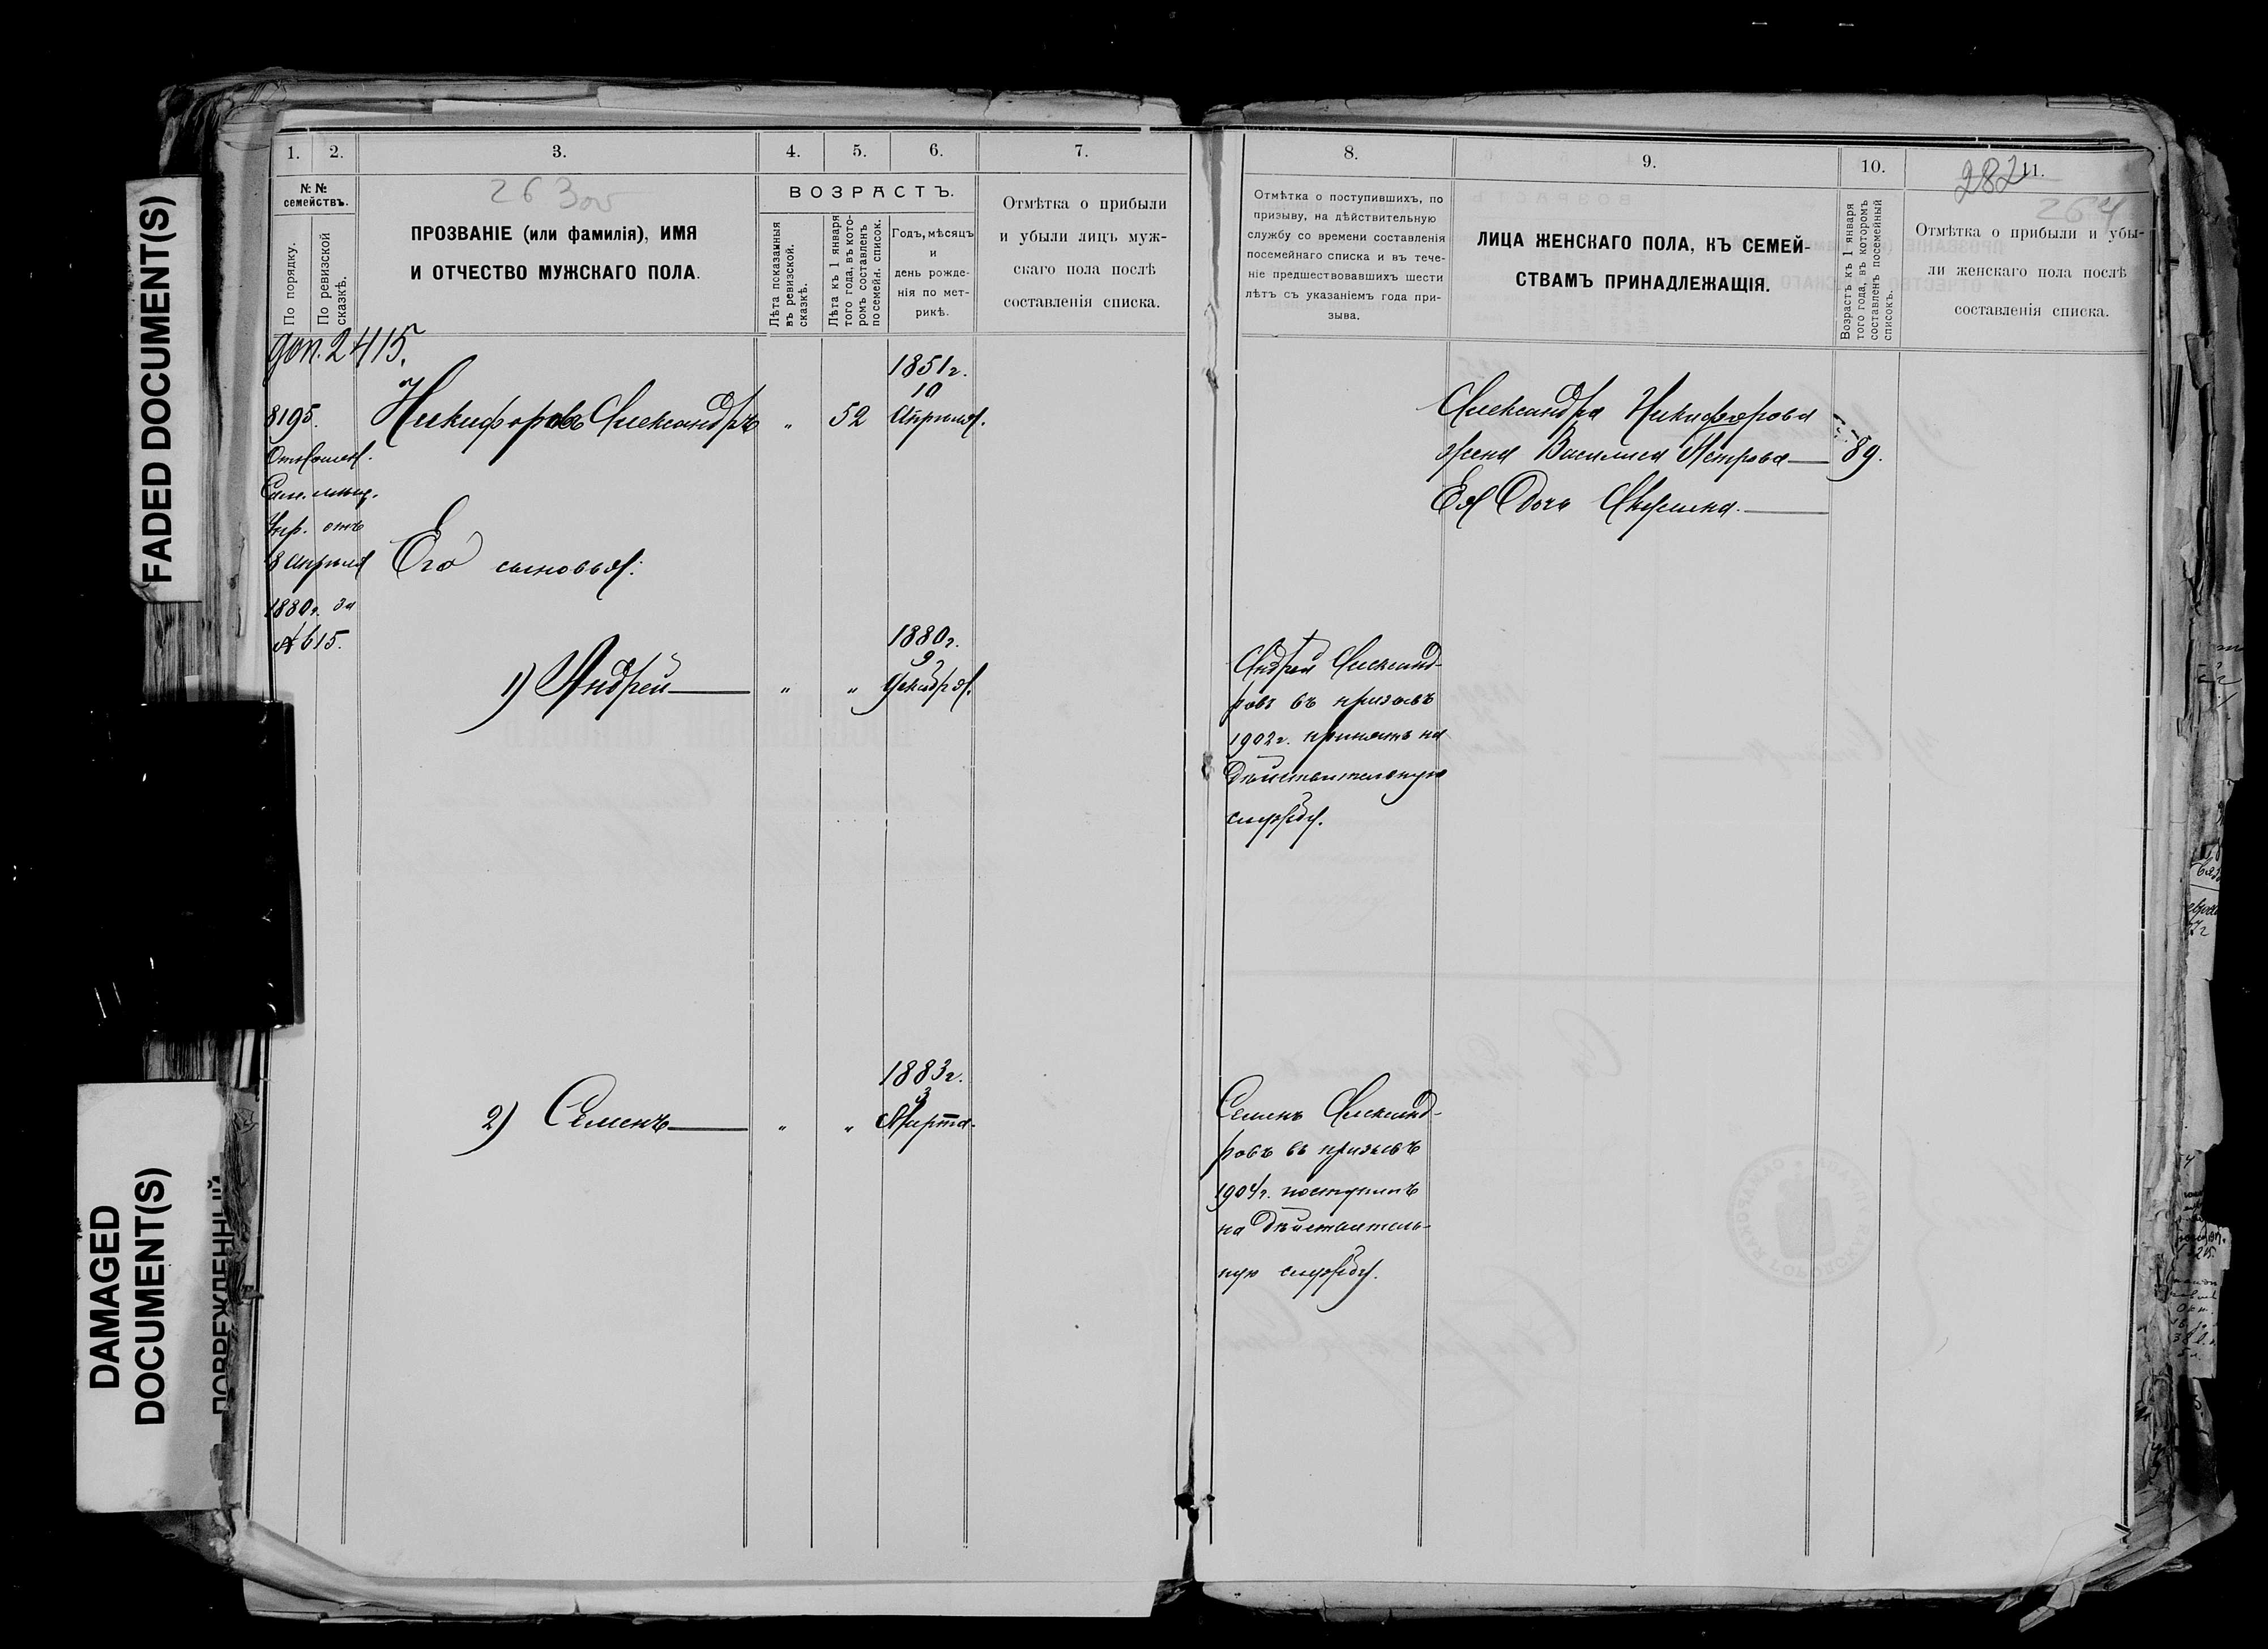 FADED DOCUMENT(S)
DAMAGED
DOCUMENT(S)
ПОВРЕЖДЕННЫЙ
1.
2.
3.
4.
5.
6.
7.
№ №
семействъ.
По порядку.
По ревизской
сказкѣ.
263об
ПРОЗВАНІЕ (или фамилія), ИМЯ
И ОТЧЕСТВО МУЖСКАГО ПОЛА.
ВОЗРАСТЪ.
Лѣта показанныя
въ ревизской
сказкѣ.
Лѣта къ 1 января
того года, въ кото-
ромъ составленъ
посемейн. список.
Годъ, мѣсяцъ
и
день рожде-
нія по мет-
рикѣ.
Отмѣтка о прибыли
и убыли лицъ муж-
скаго пола послѣ
составленія списка.
доп. 2415.
8195.
Отношен.
Сам. мѣщ.
Упр. отъ
8 апрѣля
1880г. за
№ 615.
Никифоровъ Александръ
"
52
1851г.
10
Апрѣля.
Его сыновья:
1) Андрей
"
"
1880г.
9
Декабря.
2) Семенъ
"
"
1883г.
3
Марта.
8.
9.
10.
11.
282
264
Отмѣтка о поступившихъ, по
призыву, на дѣйствительную
службу со времени составленія
посемейнаго списка и въ тече-
ніе предшествовавшихъ шести
лѣтъ съ указаніемъ года при-
зыва.
ЛИЦА ЖЕНСКАГО ПОЛА, КЪ СЕМЕЙ-
СТВАМЪ ПРИНАДЛЕЖАЩІЯ.
Возрастъ къ 1 января
того года, въ которомъ
составленъ посемейный
списокъ.
Отмѣтка о прибыли и убы-
ли женскаго пола послѣ
составленія списка.
Александра Никифорова
жена Василиса Петрова
89.
Ея дочь Акулина.
Андрей Александ-
ровъ въ призывъ
1902г. принятъ на
дѣйствительную
службу.
Семенъ Александ-
ровъ въ призывъ
1904г. поступилъ
на дѣйствитель-
ную службу.